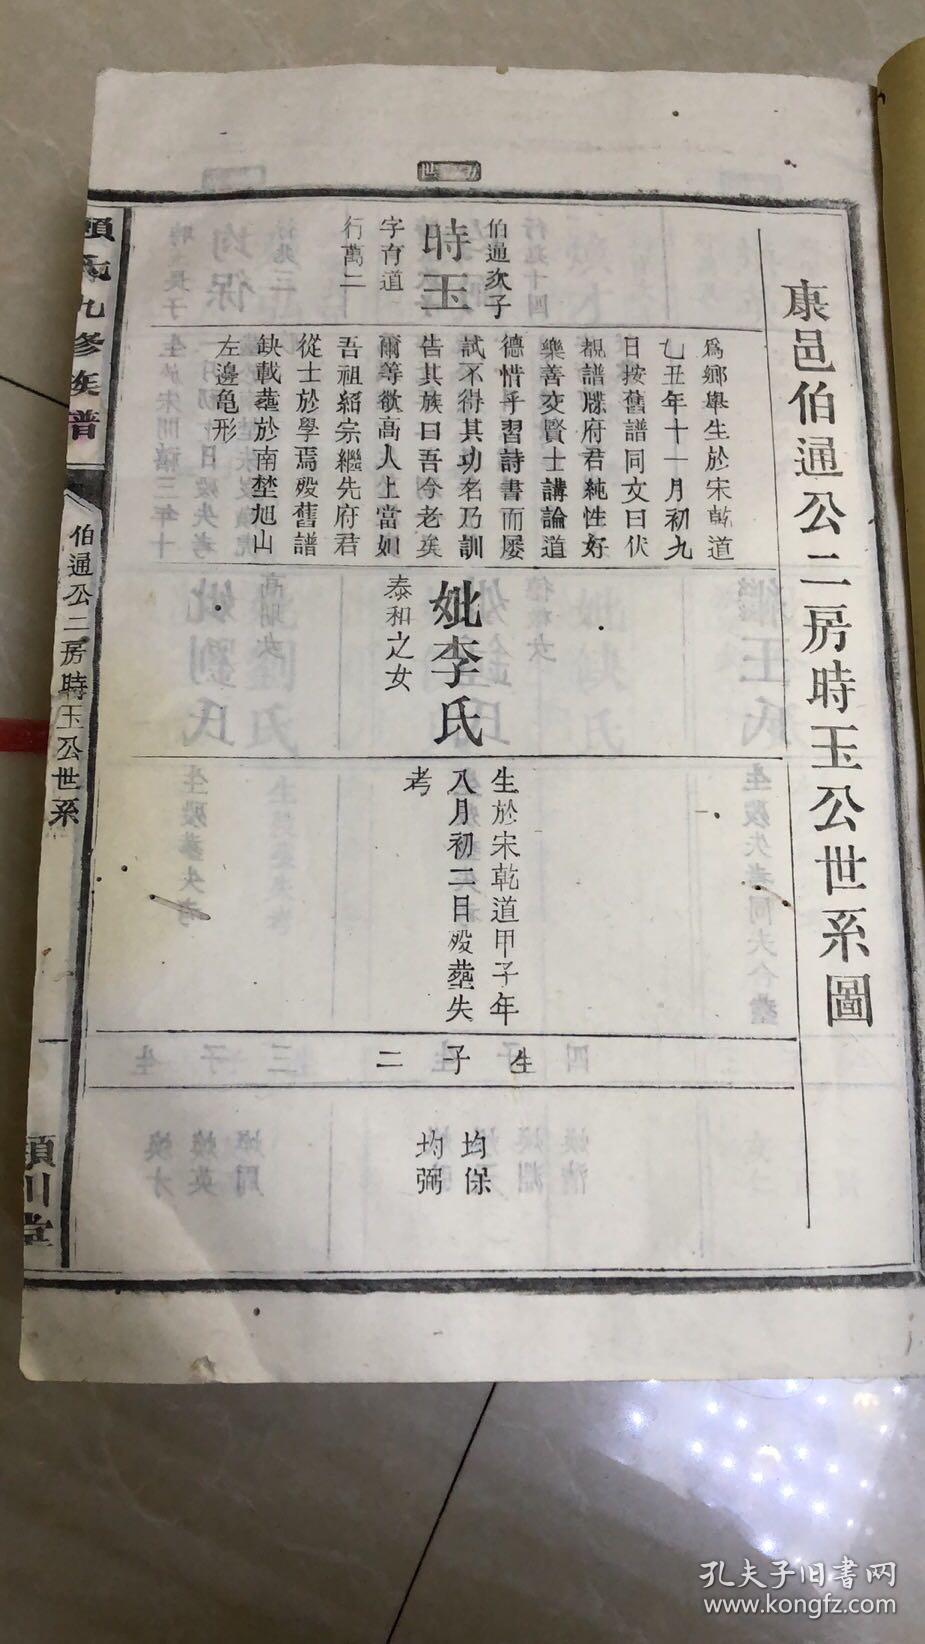 康邑伯通公二房時玉公世系圖
伯通次子
時玉
字育道
行萬二
爲鄉舉生於宋乾道
乙丑年十一月初九
日按舊譜同文曰伏
覩譜牒府君純性好
樂善交賢士講論道
德惜乎習詩書而屢
試不得其功名乃訓
告其族曰吾今老矣
爾等欲高人上當如
吾祖紹宗繼先府君
從士於學焉殁舊譜
缺載塟於南埜旭山
左邊亀形
妣李氏
泰和之女
生於宋乾道甲子年
八月初二日殁塟失
考
生子二
均保
均弼
賴氏九修族譜
伯通公二房時玉公世系
一
潁川堂
孔夫子旧书网
www.kongfz.com